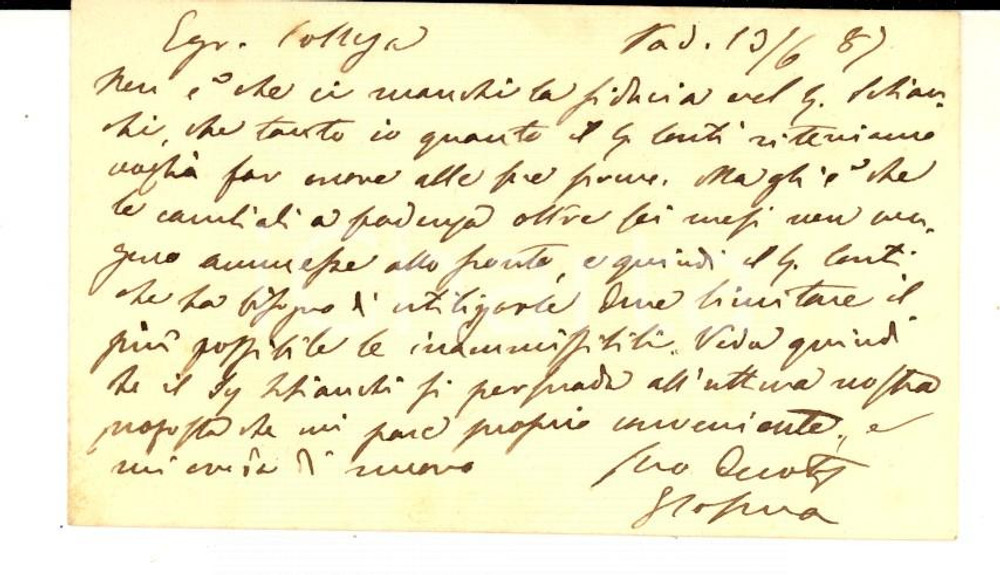 Egr. Collega Pad. 13/6 87
Non è che ci manchi la fiducia nel S. Schian-
chi, che tanto io quanto il S. Conti riteniamo
voglia far onore alle sue firme. Ma gli è che
le cambiali a scadenza oltre sei mesi non ven-
gono ammesse allo sconto, e quindi il S. Conti
che ha bisogno di utilizzarle deve limitare il
più possibile le inammissibili. Veda quindi
che il Sig Schianchi si persuada all'ultima nostra
proposta che mi pare proprio conveniente, e
mi creda di nuovo Suo Devot